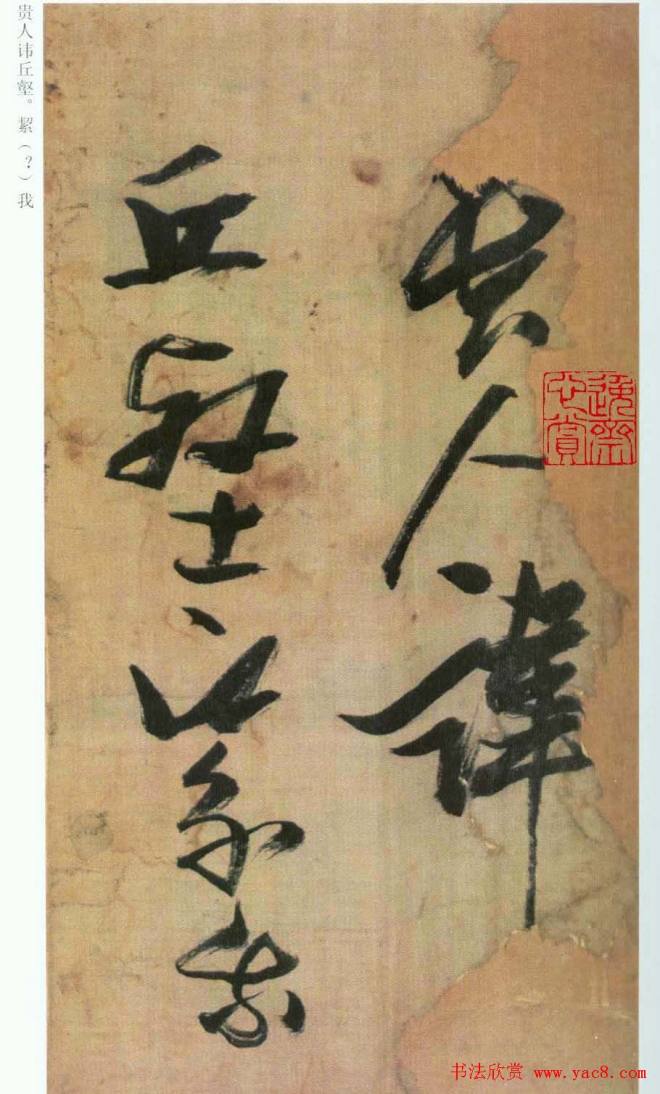 貴人諱
丘壑
我
贵人讳丘壑。（？）我
书法欣赏 www.yac8.com